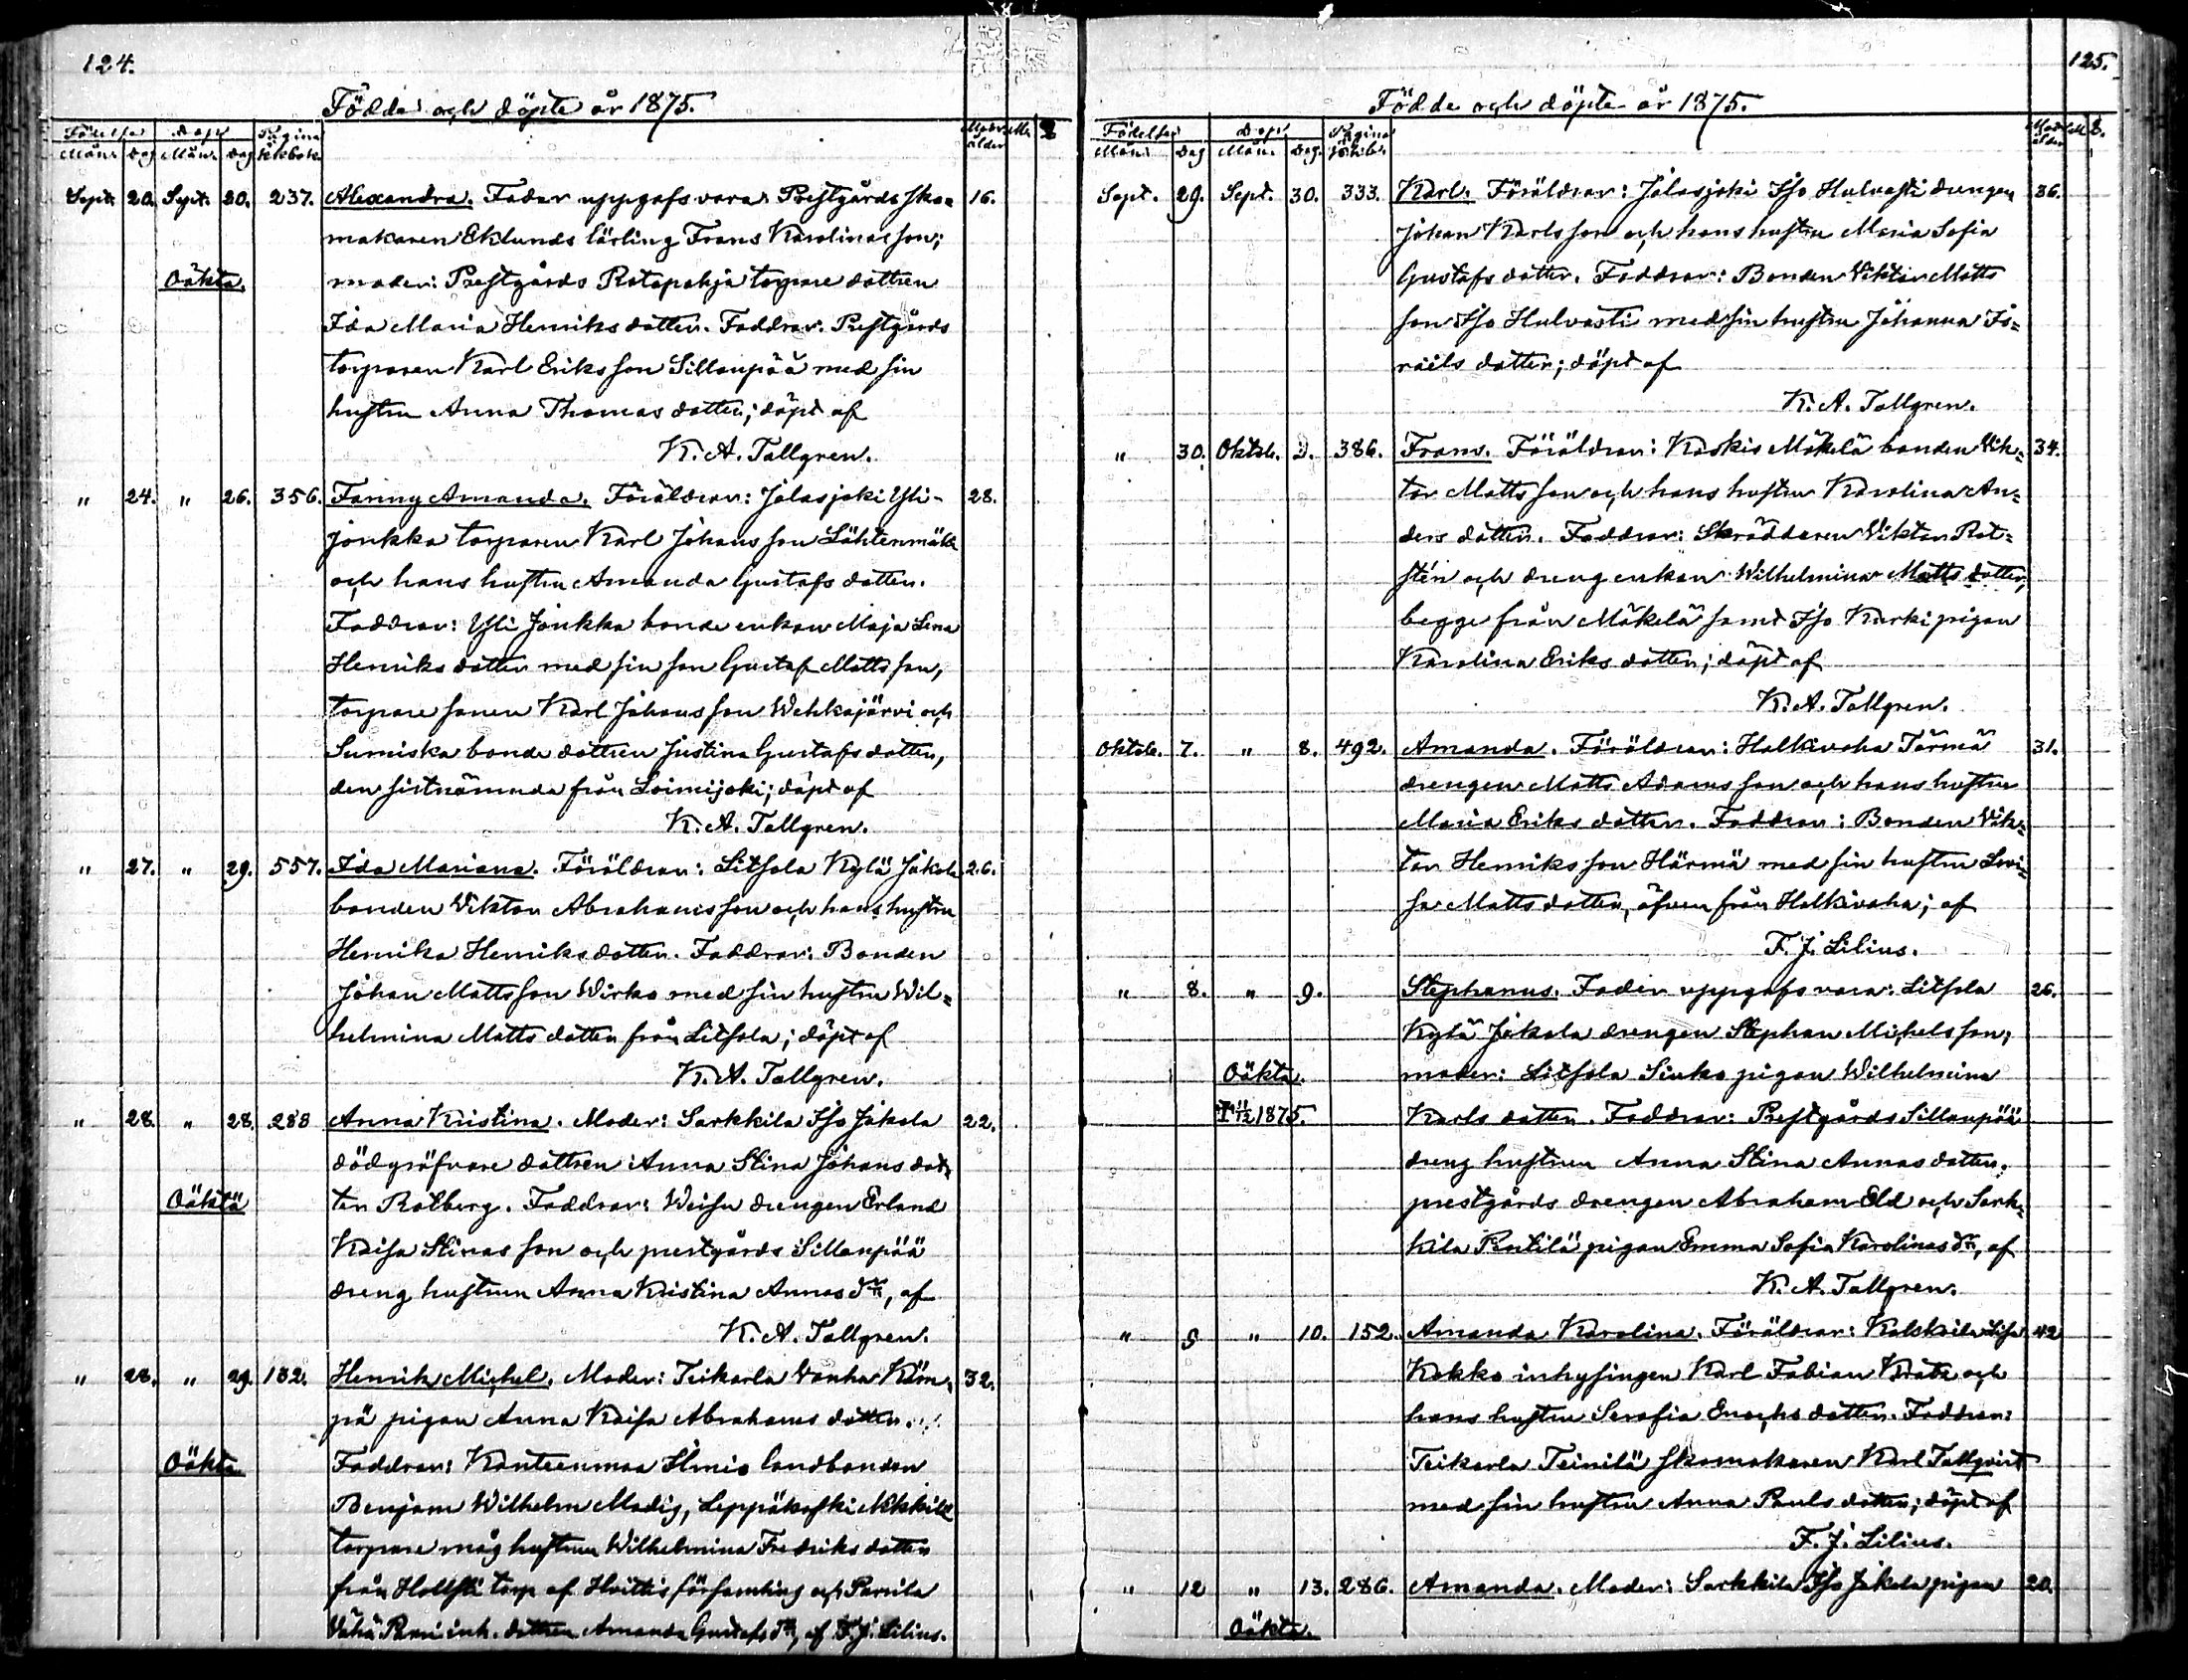 124.
Födde och döpte år 1875.
Födelse Dop Pagina Moders ålder
Mån. Dag Mån. Dag kkbok.
Sept. 20. Sept. 20. 237. Alexandra. Fader uppgafs vara Prestgårds sko= 16.
makaren Eklunds lärling Frans Karolinas son;
Oäkta. moder: Prestgårds Ratapahja torpare dottren
Ida Maria Henriks dotter. Faddrar: Prestgårds
torparen Karl Eriks son Sillanpää med sin
hustru Anna Thomas dotter; döpt af
K. A. Tallgren.
" 24. " 26. 356. Fanny Amanda. Föräldrar: Jalasjoki Yli- 28.
jonkka torparen Karl Johans son Lähtenmäki
och hans hustru Amanda Gustafs dotter.
Faddrar: Yli Jonkka bonde enkan Maja Lena
Henriks dotter med sin son Gustaf Matts son,
torpare sonen Karl Johans son Wehkajärvi och
Sumiska bonde dottren Justina Gustafs dotter,
den sistnämnda från Loimijoki; döpt af
K. A. Tallgren.
" 27. " 29. 557. Ida Mariana. Föräldrar: Litsola Kylä Jakola 26.
bonden Viktor Abrahams son och hans hustru
Henrika Henriks dotter. Faddrar: Bonden
Johan Matts son Wirko med sin hustru Wil=
helmina Matts dotter från Litsola; döpt af
K. A. Tallgren.
" 28. " 28. 288 Anna Kristina. Moder: Sarkkila Iso Jakola 22.
dödgräfvare dottren Anna Stina Johans dot=
Oäkta ter Rotberg. Faddrar: Weisu drengen Erland
Kaisa Stinas son och prestgårds Sillanpää
dreng hustrun Anna Kristina Annas dr, af
K. A. Tallgren.
" 28. " 29. 132. Henrik Michel. Moder: Teikarla Vanha Käm= 32.
pä pigan Anna Kaisa Abrahams dotter.
Oäkta Faddrar: Kanteenmaa Ilmis landbonden
Benjam Wilhelm Modig, Leppäkoski Nikkilä
torpare måg hustrun Wilhelmina Fredriks dotter
från Hollsti torp af Hvittis församling och Parrila
Vähä Pärri inh. dottren Amanda Gustafs dr, af F. J. Lilius.
125.
Födde och döpte år 1875.
Födelse Dop Pagina Mod. ålder
Mån. Dag Mån. Dag.
Sept. 29. Sept. 30. 333. Karl. Föräldrar: Jalasjoki Iso Hulvasti drengen 36.
Johan Karls son och hans hustru Maria Sofia
Gustafs dotter. Faddrar: Bonden Viktor Matts
son Iso Hulvasti med sin hustru Johanna Is=
raëls dotter; döpt af
K. A. Tallgren.
" 30. Oktob. 2. 386. Frans. Föräldrar: Koskis Mäkelä bonden Vik= 34.
tor Matts son och hans hustru Karolina An=
ders dotter. Faddrar: Skräddaren Viktor Rot=
stén och dreng enkan Wilhelmina Matts dotter,
begge från Mäkelä samt Iso Kurki pigan
Karolina Eriks dotter; döpt af
K. A. Tallgren.
Oktob. 7. " 8. 492. Amanda. Föräldrar: Halkivaha Tärmä 31.
drengen Matts Adams son och hans hustru
Maria Eriks dotter. Faddrar: Bonden Vik=
tor Henriks son Härmä med sin hustru Lovi=
sa Matts dotter, äfven från Halkivaha; af
F. J. Lilius.
" 8. " 9. Stephanus. Fader uppgafs vara: Litsola 26.
Kylä Jakola drengen Stephan Michels son;
Oäkta. moder: Litsola Sinko pigan Wilhelmina
1875. Karls dotter. Faddrar: Prestgårds Sillanpää
dreng hustrun Anna Stina Annas dotter,
prestgårds drengen Abraham Eld och Sark=
kila Penttilä pigan Emma Sofia Karolinas dr, af
K. A. Tallgren.
" 9 " 10. 152. Amanda Karolina. Föräldrar: 42
Kokko inhysingen Karl Fabian och
hans hustru Serafia Enochs dotter. Faddrar:
Teikarla Teinilä skomakaren Karl Tallqvist
med sin hustru Anna Pauls dotter; döpt af
F. J. Lilius.
" 12 " 13. 286. Amanda. Moder: Sarkkila Iso Jakola pigan 20.
Oäkta.